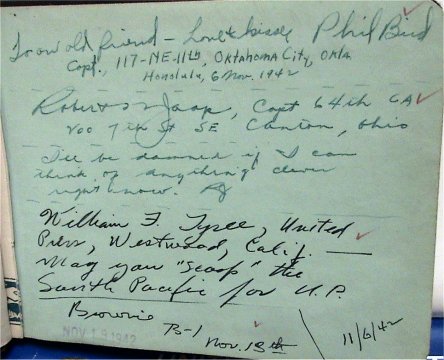 To an old friend - Love & kisses Phil Bird
Capt., 117-NE-11th, Oklahoma City, Okla
Honolulu, 6 Nov. 1942
Roberts Jaap, Capt 64th CA
700 7th St SE Canton, Ohio
I'll be damned if I can
think of anything clever
right know.
William F. Tyree, United
Press, Westwood, Calif. —
May you "scoop" the
South Pacific for U.P.
Brownie
B-1
Nov. 13th
11/6/42
NOV 19 1942